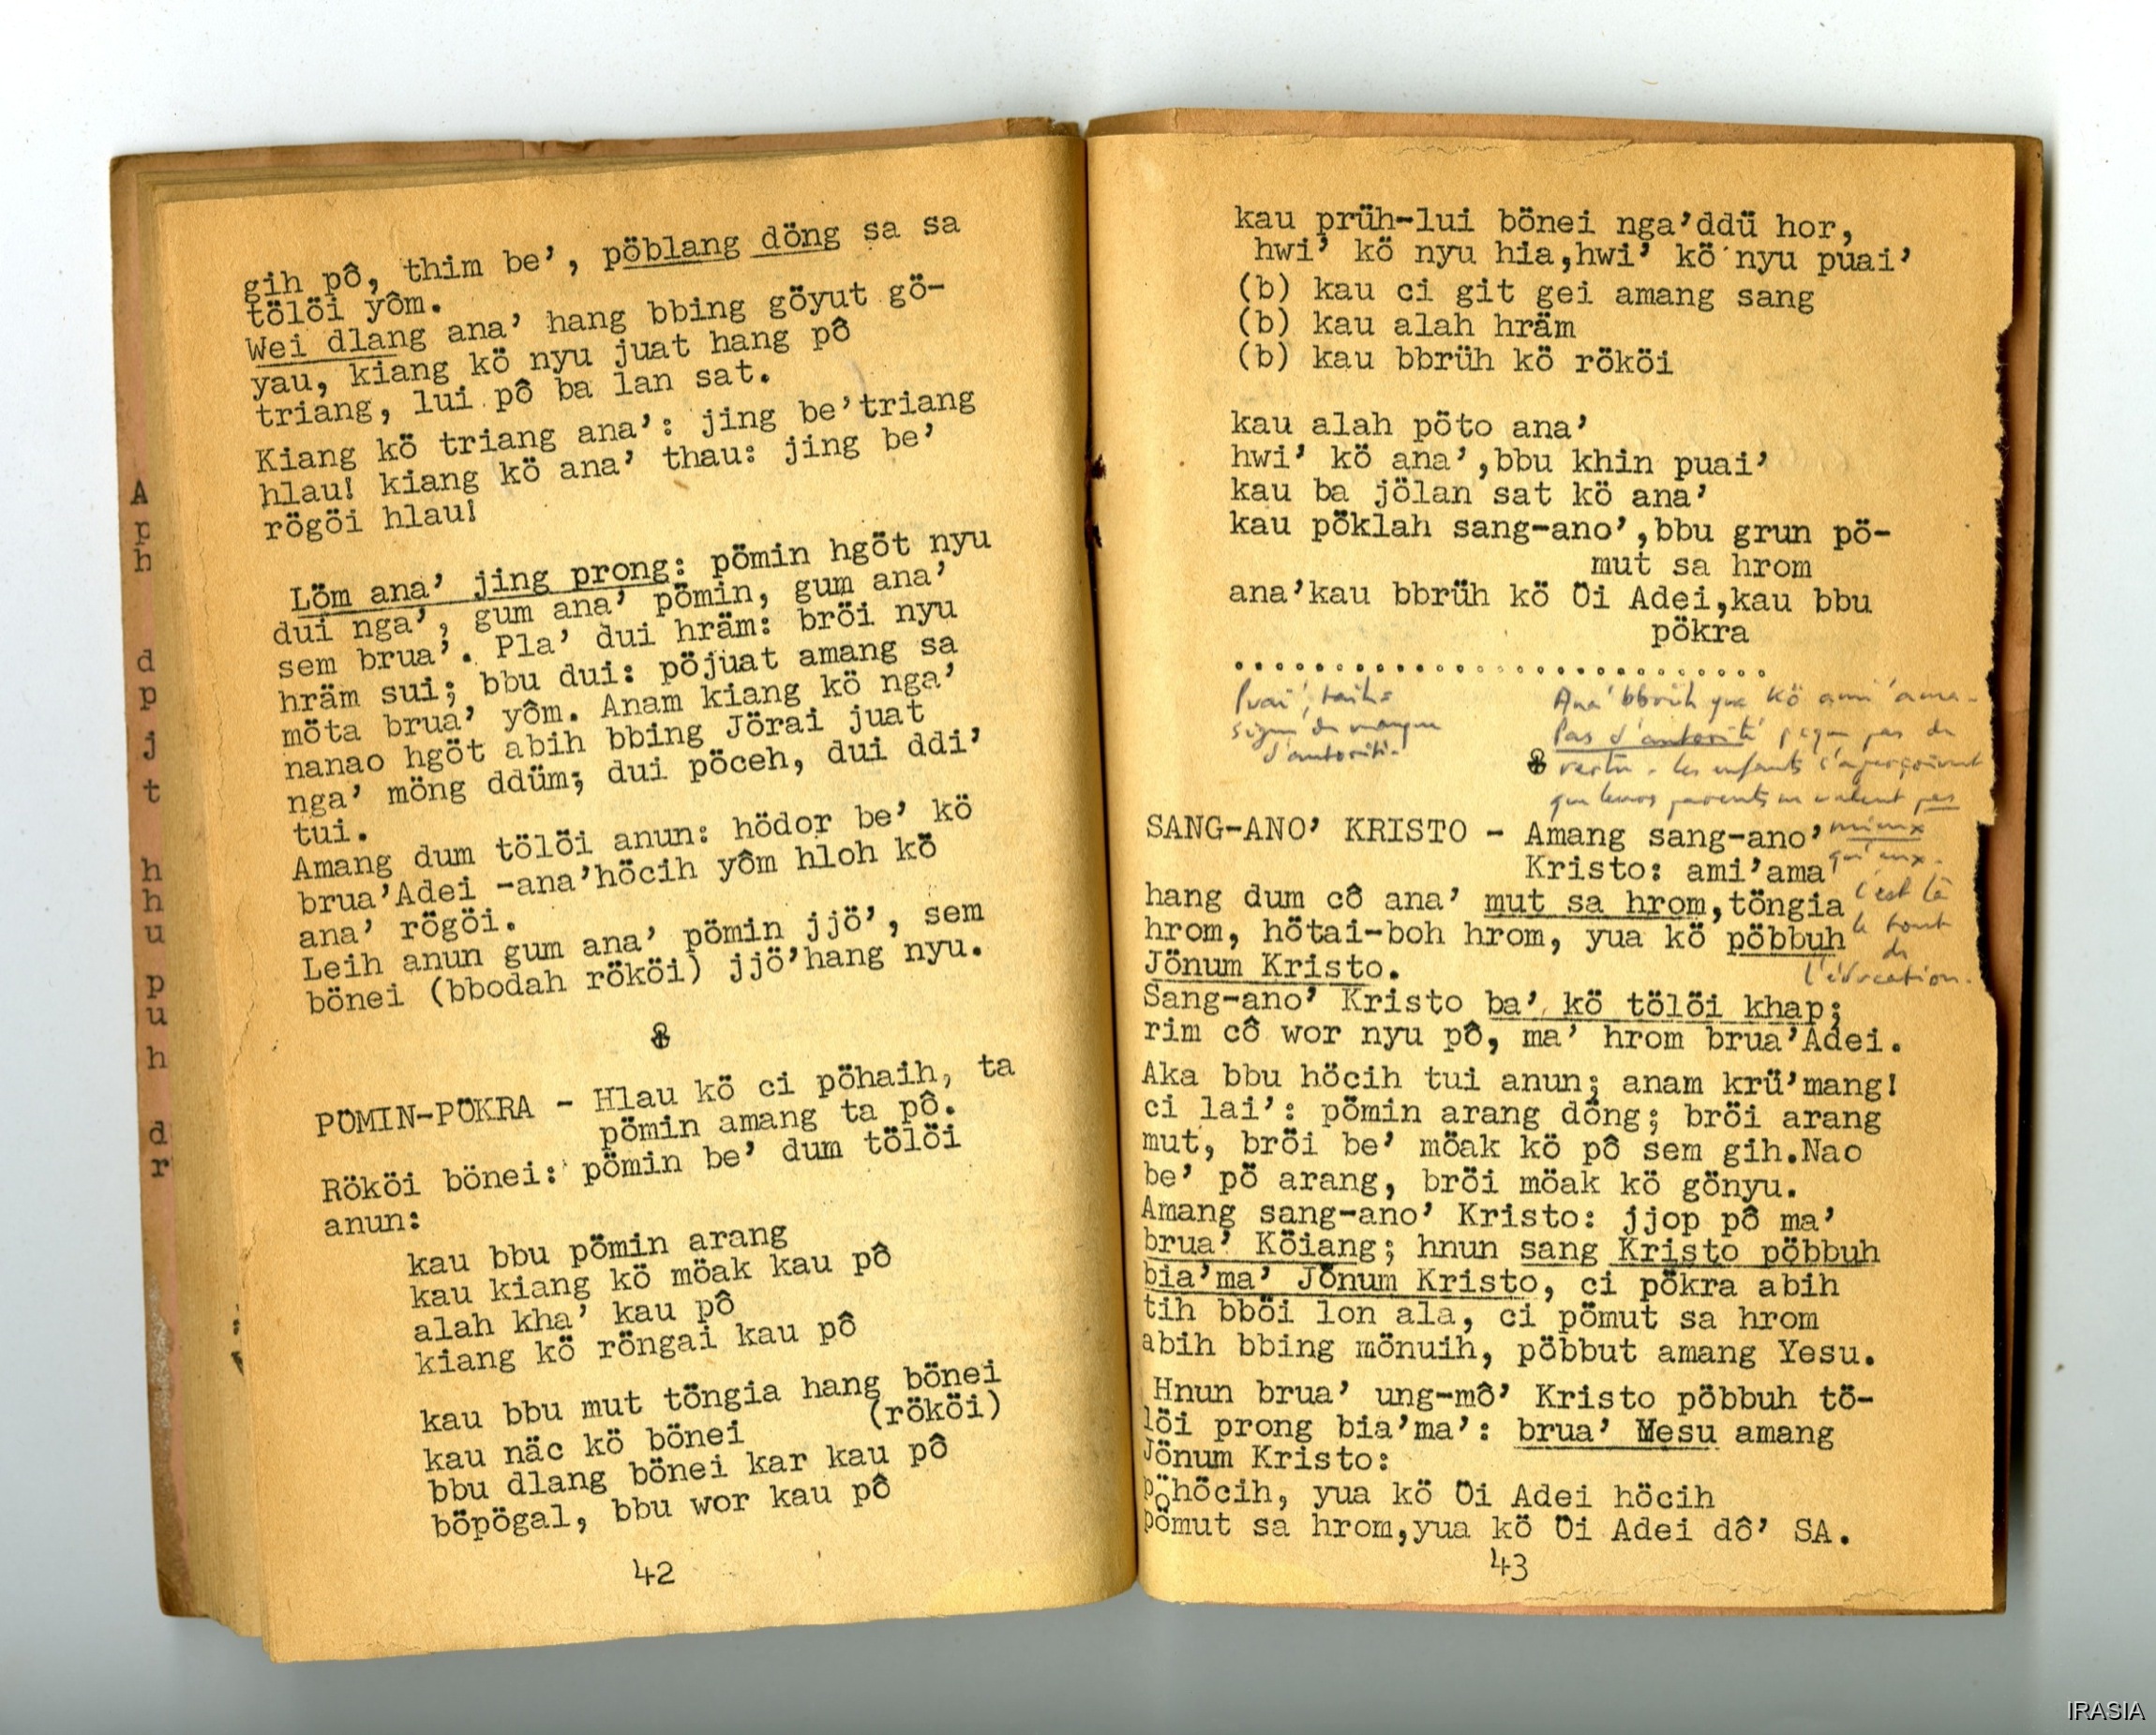 gih pô, thim be’, pöblang döng sa sa
tölöi yôm.
Wei dlang ana’ hang bbing göyut gö-
yau, kiang kö nyu juat hang pô
triang, lui pô ba lan sat.
Kiang kö triang ana’: jing be’triang
hlau! kiang kö ana’ thau: jing be’
rögöi hlau!
Löm ana’ jing prong: pömin hgöt nyu
dui nga’, gum ana’ pömin, gum ana’
sem brua’. Pla’ dui hräm: bröi nyu
hräm sui; bbu dui: pöjuat amang sa
möta brua’ yôm. Anam kiang kö nga’
nanao hgöt abih bbing Jörai juat
nga’ möng ddüm; dui pöceh, dui ddi’
tui.
Amang dum tölöi anun: hödor be’ kö
brua’Adei -ana’höcih yôm hloh kö
ana’ rögöi.
Leih anun gum ana’ pömin jjö’, sem
bönei (bbodah rököi) jjö’hang nyu.
PÖMIN-PÖKRA - Hlau kö ci pöhaih, ta
pömin amang ta pô.
Rököi bönei: pömin be’ dum tölöi
anun:
kau bbu pömin arang
kau kiang kö möak kau pô
alah kha’ kau pô
kiang kö röngai kau pô
kau bbu mut töngia hang bönei
(rököi)
kau näc kö bönei
bbu dlang bönei kar kau pô
böpögal, bbu wor kau pô
42
A
p
h
d
p
j
t
h
h
u
p
u
h
d
r
kau prüh-lui bönei nga’ddü hor,
hwi’ kö nyu hia,hwi’ kö nyu puai’
(b) kau ci git gei amang sang
(b) kau alah hräm
(b) kau bbrüh kö rököi
kau alah pöto ana’
hwi’ kö ana’,bbu khin puai’
kau ba jölan sat kö ana’
kau pöklah sang-ano’,bbu grun pö-
mut sa hrom
ana’kau bbrüh kö Öi Adei,kau bbu
pökra
............................
signe de manque
d'autorité.
Ana' bbrüh yua kö ami'ama-
Pas d'autorité pas de
vertu. les enfants s'aperçoivent
que leurs parents ne valent pas
mieux
qu'eux.
c'est là
le tout
de
l'éducation.
SANG-ANO’ KRISTO - Amang sang-ano’
Kristo: ami’ama
hang dum cô ana’ mut sa hrom,töngia
hrom, hötai-boh hrom, yua kö pöbbuh
Jönum Kristo.
Sang-ano’ Kristo ba’ kö tölöi khap;
rim cô wor nyu pô, ma’ hrom brua’Adei.
Aka bbu höcih tui anun; anam krü’mang!
ci lai’: pömin arang döng; bröi arang
mut, bröi be’ möak kö pô sem gih.Nao
be’ pö arang, bröi möak kö gönyu.
Amang sang-ano’ Kristo: jjop pô ma’
brua’ Köiang; hnun sang Kristo pöbbuh
bia’ma’ Jönum Kristo, ci pökra abih
tih bböi lon ala, ci pömut sa hrom
abih bbing mönuih, pöbbut amang Yesu.
Hnun brua’ ung-mô’ Kristo pöbbuh tö-
löi prong bia’ma’: brua’ Mesu amang
Jönum Kristo:
pöhöcih, yua kö Öi Adei höcih
pömut sa hrom,yua kö Öi Adei dô’ SA.
43
IRASIA